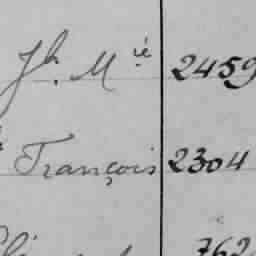 Jh. Mié 2459
François 2304
762